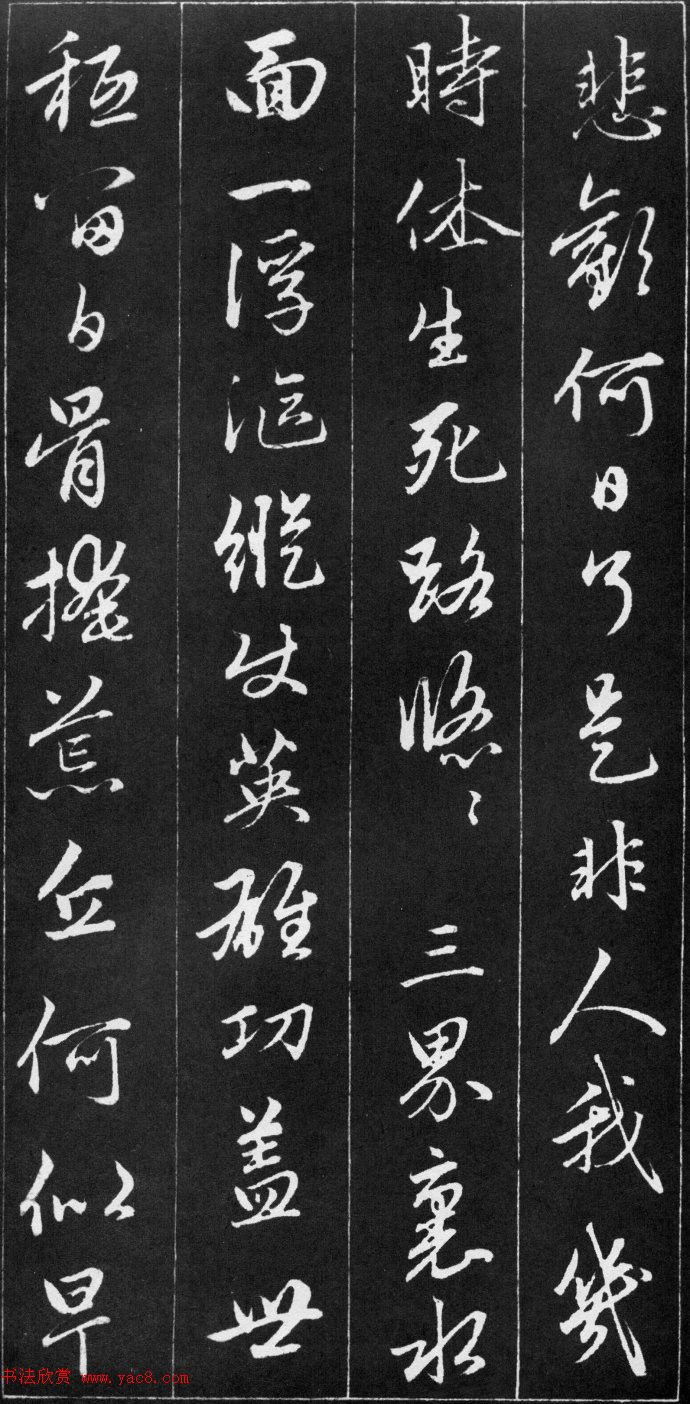 悲歡何日了是非人我幾
時休生死路悠〻 三界裏水
面一浮漚縱使英雄功盖世
秪留白骨掩荒丘何似早
书法欣赏 www.yac8.com